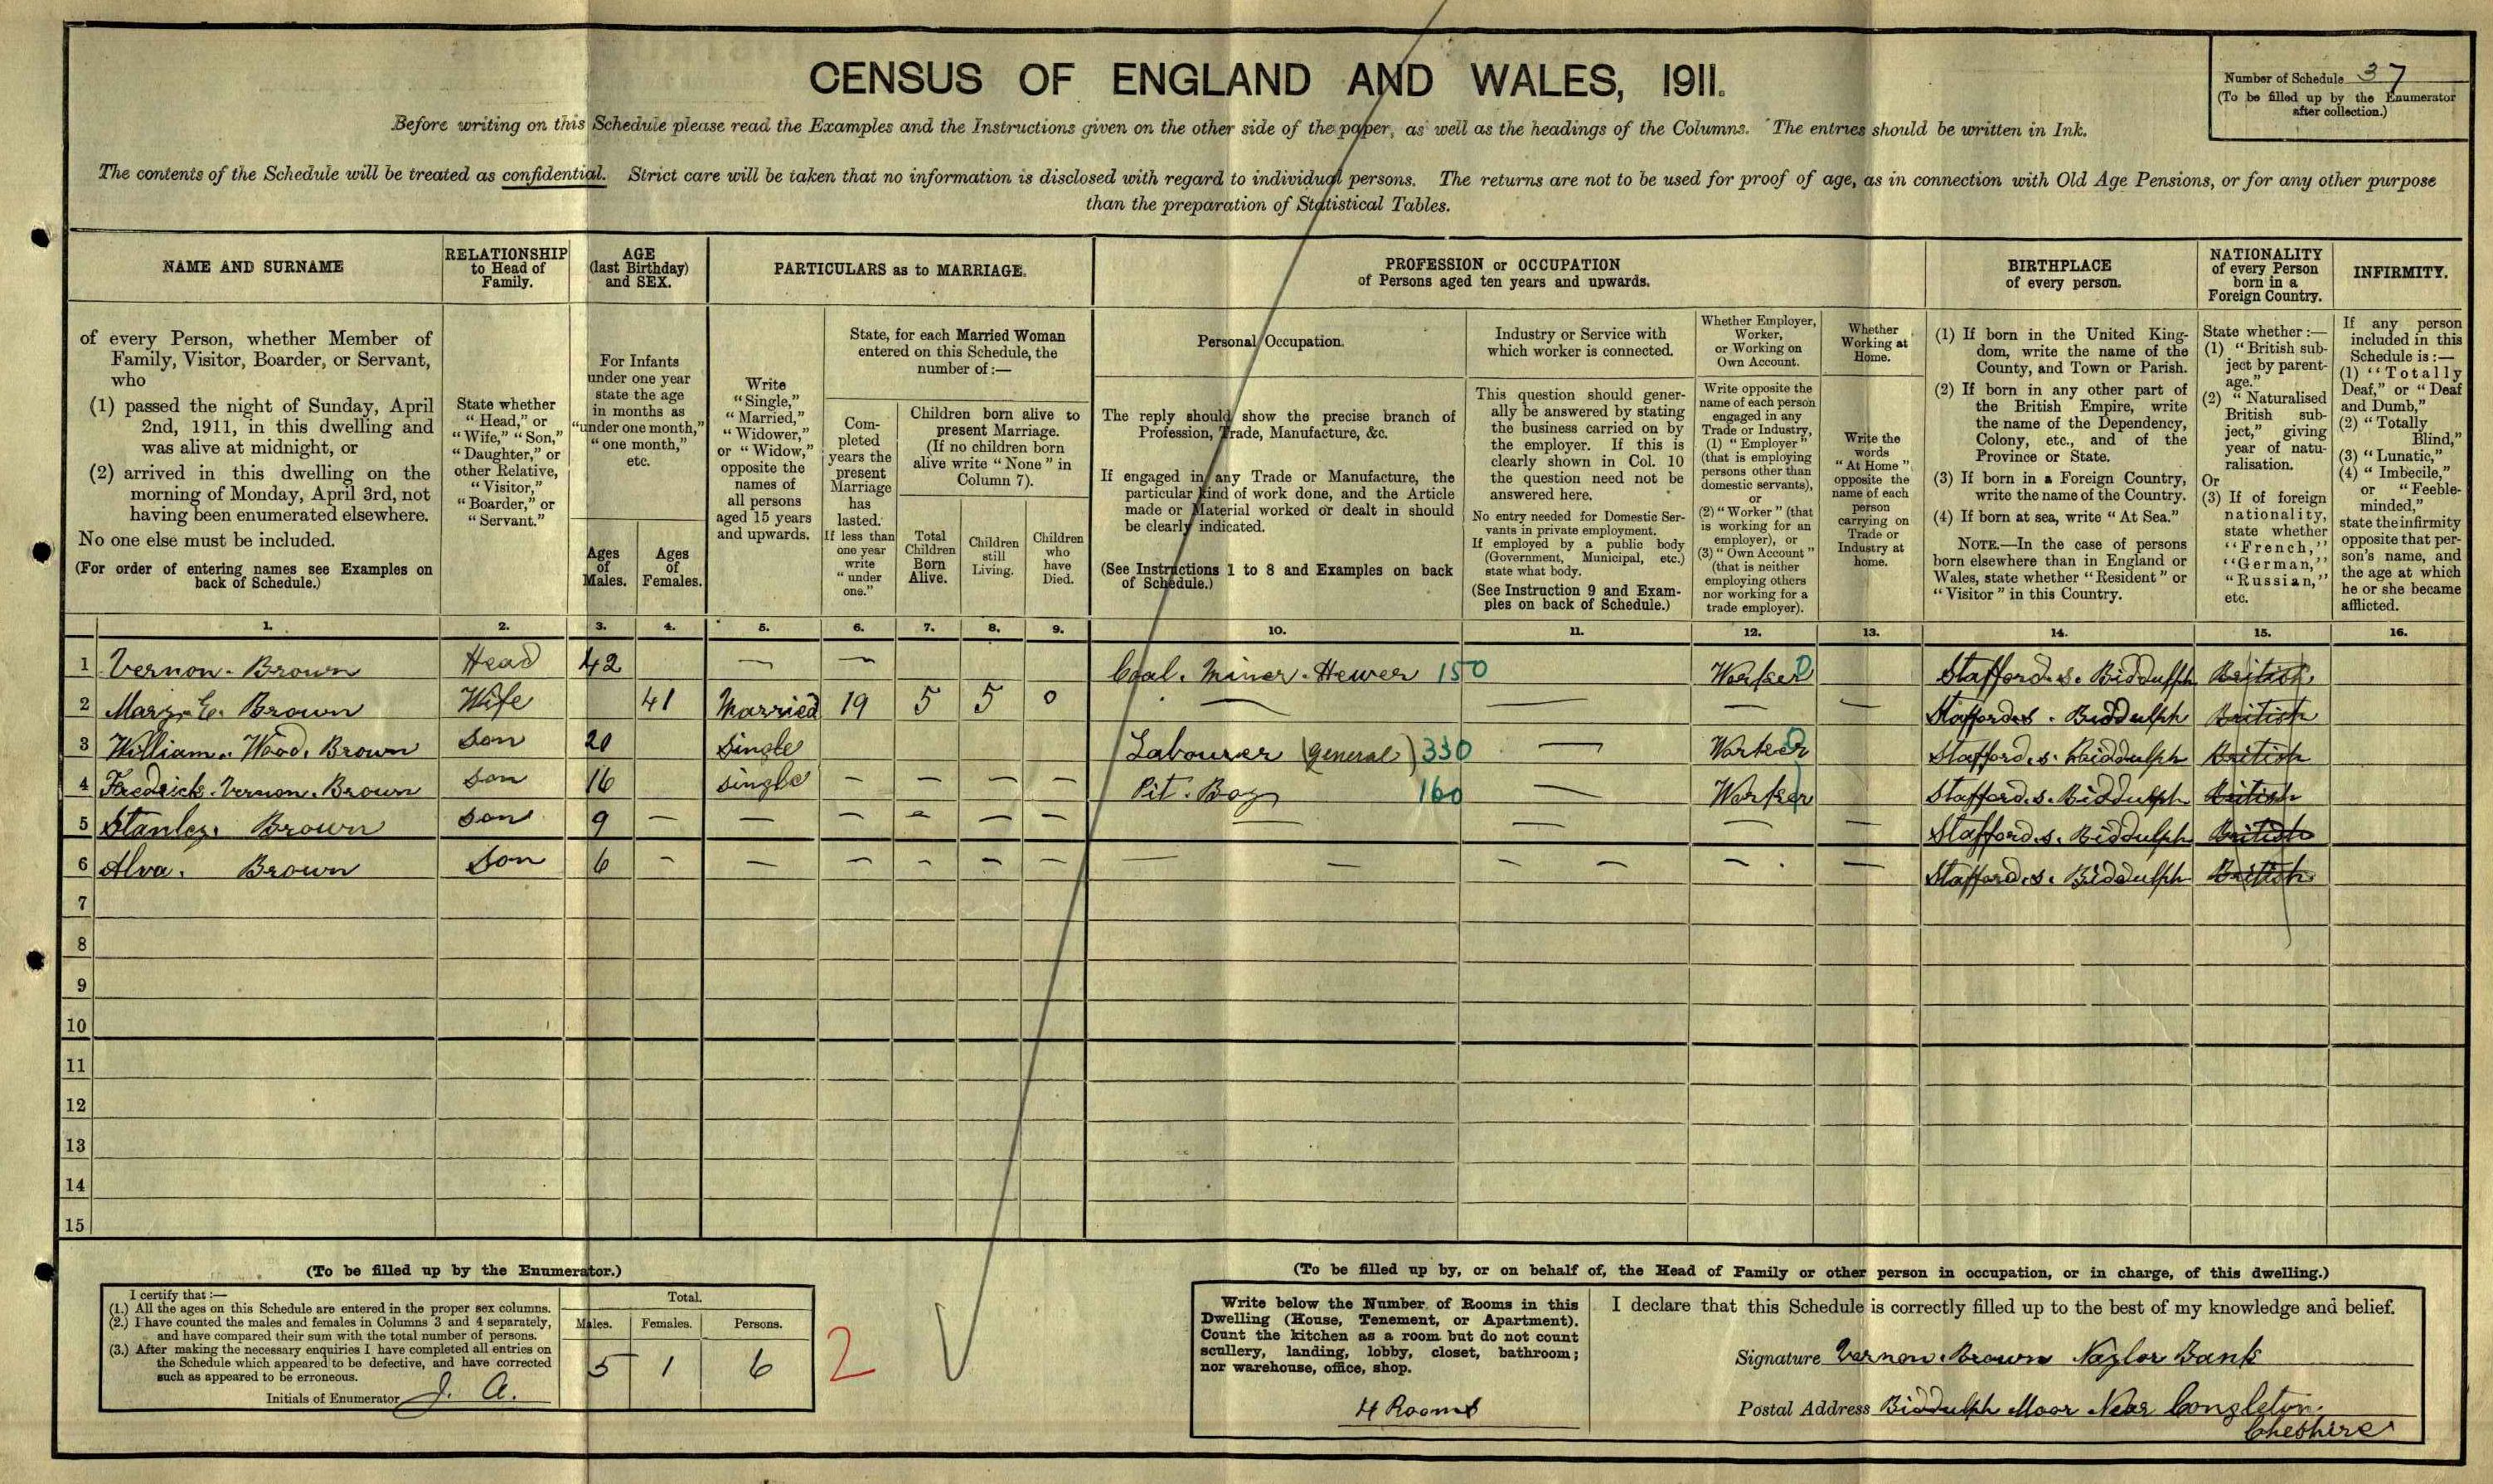 CENSUS OF ENGLAND AND WALES, 1911.
Number of Schedule 37
(To be filled up by the Enumerator
after collection.)
Before writing on this Schedule please read the Examples and the Instructions given on the other side of the paper, as well as the headings of the Columns. The entries should be written in Ink.
The contents of the Schedule will be treated as confidential. Strict care will be taken that no information is disclosed with regard to individual persons. The returns are not to be used for proof of age, as in connection with Old Age Pensions, or for any other purpose
than the preparation of Statistical Tables.
NAME AND SURNAME
of every Person, whether Member of
Family, Visitor, Boarder, or Servant,
who
(1) passed the night of Sunday, April
2nd, 1911, in this dwelling and
was alive at midnight, or
(2) arrived in this dwelling on the
morning of Monday, April 3rd, not
having been enumerated elsewhere.
No one else must be included.
(For order of entering names see Examples on
back of Schedule.)
RELATIONSHIP
to Head of
Family.
State whether
"Head," or
"Wife," "Son,"
"Daughter," or
other Relative,
"Visitor,"
"Boarder," or
"Servant."
AGE
(last Birthday)
and SEX.
For Infants
under one year
state the age
in months as
"under one month,"
"one month,"
etc.
Ages
of
Males.
Ages
of
Females.
PARTICULARS as to MARRIAGE.
Write
"Single,"
"Married,"
"Widower,"
or "Widow,"
opposite the
names of
all persons
aged 15 years
and upwards.
State, for each Married Woman
entered on this Schedule, the
number of:—
Com-
pleted
years the
present
Marriage
has
lasted.
If less than
one year
write
"under
one."
Children born alive to
present Marriage.
(If no children born
alive write "None" in
Column 7).
Total
Children
Born
Alive.
Children
still
Living.
Children
who
have
Died.
PROFESSION or OCCUPATION
of Persons aged ten years and upwards.
Personal Occupation.
The reply should show the precise branch of
Profession, Trade, Manufacture, &c.
If engaged in any Trade or Manufacture, the
particular kind of work done, and the Article
made or Material worked or dealt in should
be clearly indicated.
(See Instructions 1 to 8 and Examples on back
of Schedule.)
Industry or Service with
which worker is connected.
This question should gener-
ally be answered by stating
the business carried on by
the employer. If this is
clearly shown in Col. 10
the question need not be
answered here.
No entry needed for Domestic Ser-
vants in private employment.
If employed by a public body
(Government, Municipal, etc.)
state what body.
(See Instruction 9 and Exam-
ples on back of Schedule.)
Whether Employer,
Worker,
or Working on
Own Account.
Write opposite the
name of each person
engaged in any
Trade or Industry,
(1) "Employer"
(that is employing
persons other than
domestic servants),
or
(2) "Worker" (that
is working for an
employer), or
(3) "Own Account"
(that is neither
employing others
nor working for a
trade employer).
Whether
Working at
Home.
Write the
words
"At Home"
opposite the
name of each
person
carrying on
Trade or
Industry at
home.
BIRTHPLACE
of every person.
(1) If born in the United King-
dom, write the name of the
County, and Town or Parish.
(2) If born in any other part of
the British Empire, write
the name of the Dependency,
Colony, etc., and of the
Province or State.
(3) If born in a Foreign Country,
write the name of the Country.
(4) If born at sea, write "At Sea."
NOTE.—In the case of persons
born elsewhere than in England or
Wales, state whether "Resident" or
"Visitor" in this Country.
NATIONALITY
of every Person
born in a
Foreign Country.
State whether:—
(1) "British sub-
ject by parent-
age."
(2) "Naturalised
British sub-
ject," giving
year of natu-
ralisation.
Or
(3) If of foreign
nationality,
state whether
"French,"
"German,"
"Russian,"
etc.
INFIRMITY.
If any person
included in this
Schedule is:—
(1) "Totally
Deaf," or "Deaf
and Dumb,"
(2) "Totally
Blind,"
(3) "Lunatic,"
(4) "Imbecile,"
or "Feeble-
minded,"
state the infirmity
opposite that per-
son's name, and
the age at which
he or she became
afflicted.
1. 2. 3. 4. 5. 6. 7. 8. 9. 10. 11. 12. 13. 14. 15. 16.
1 Vernon. Brown Head 42 — — Coal. Miner. Hewer 150 Worker Stafford.s. Biddulph British
2 Mary. E. Brown Wife 41 Married 19 5 5 0 — — — — Stafford.s. Biddulph British
3 William. Wood. Brown Son 20 Single Labourer (general) 330 — Worker Stafford.s. Biddulph British
4 Fredrick. Vernon. Brown Son 16 Single — — — — Pit. Boy 160 — Worker Stafford.s. Biddulph British
5 Stanley. Brown Son 9 — — — — — — — — — — Stafford.s. Biddulph British
6 Alva. Brown Son 6 — — — — — — — — — — — — Stafford.s. Biddulph British
7
8
9
10
11
12
13
14
15
(To be filled up by the Enumerator.)
I certify that:—
(1.) All the ages on this Schedule are entered in the proper sex columns.
(2.) I have counted the males and females in Columns 3 and 4 separately,
and have compared their sum with the total number of persons.
(3.) After making the necessary enquiries I have completed all entries on
the Schedule which appeared to be defective, and have corrected
such as appeared to be erroneous.
Initials of Enumerator J. A.
Total.
Males. Females. Persons.
5 1 6
2
(To be filled up by, or on behalf of, the Head of Family or other person in occupation, or in charge, of this dwelling.)
Write below the Number of Rooms in this
Dwelling (House, Tenement, or Apartment).
Count the kitchen as a room but do not count
scullery, landing, lobby, closet, bathroom;
nor warehouse, office, shop.
4 Rooms
I declare that this Schedule is correctly filled up to the best of my knowledge and belief.
Signature Vernon. Brown Naylor Bank
Postal Address Biddulph Moor Near Congleton.
Cheshire